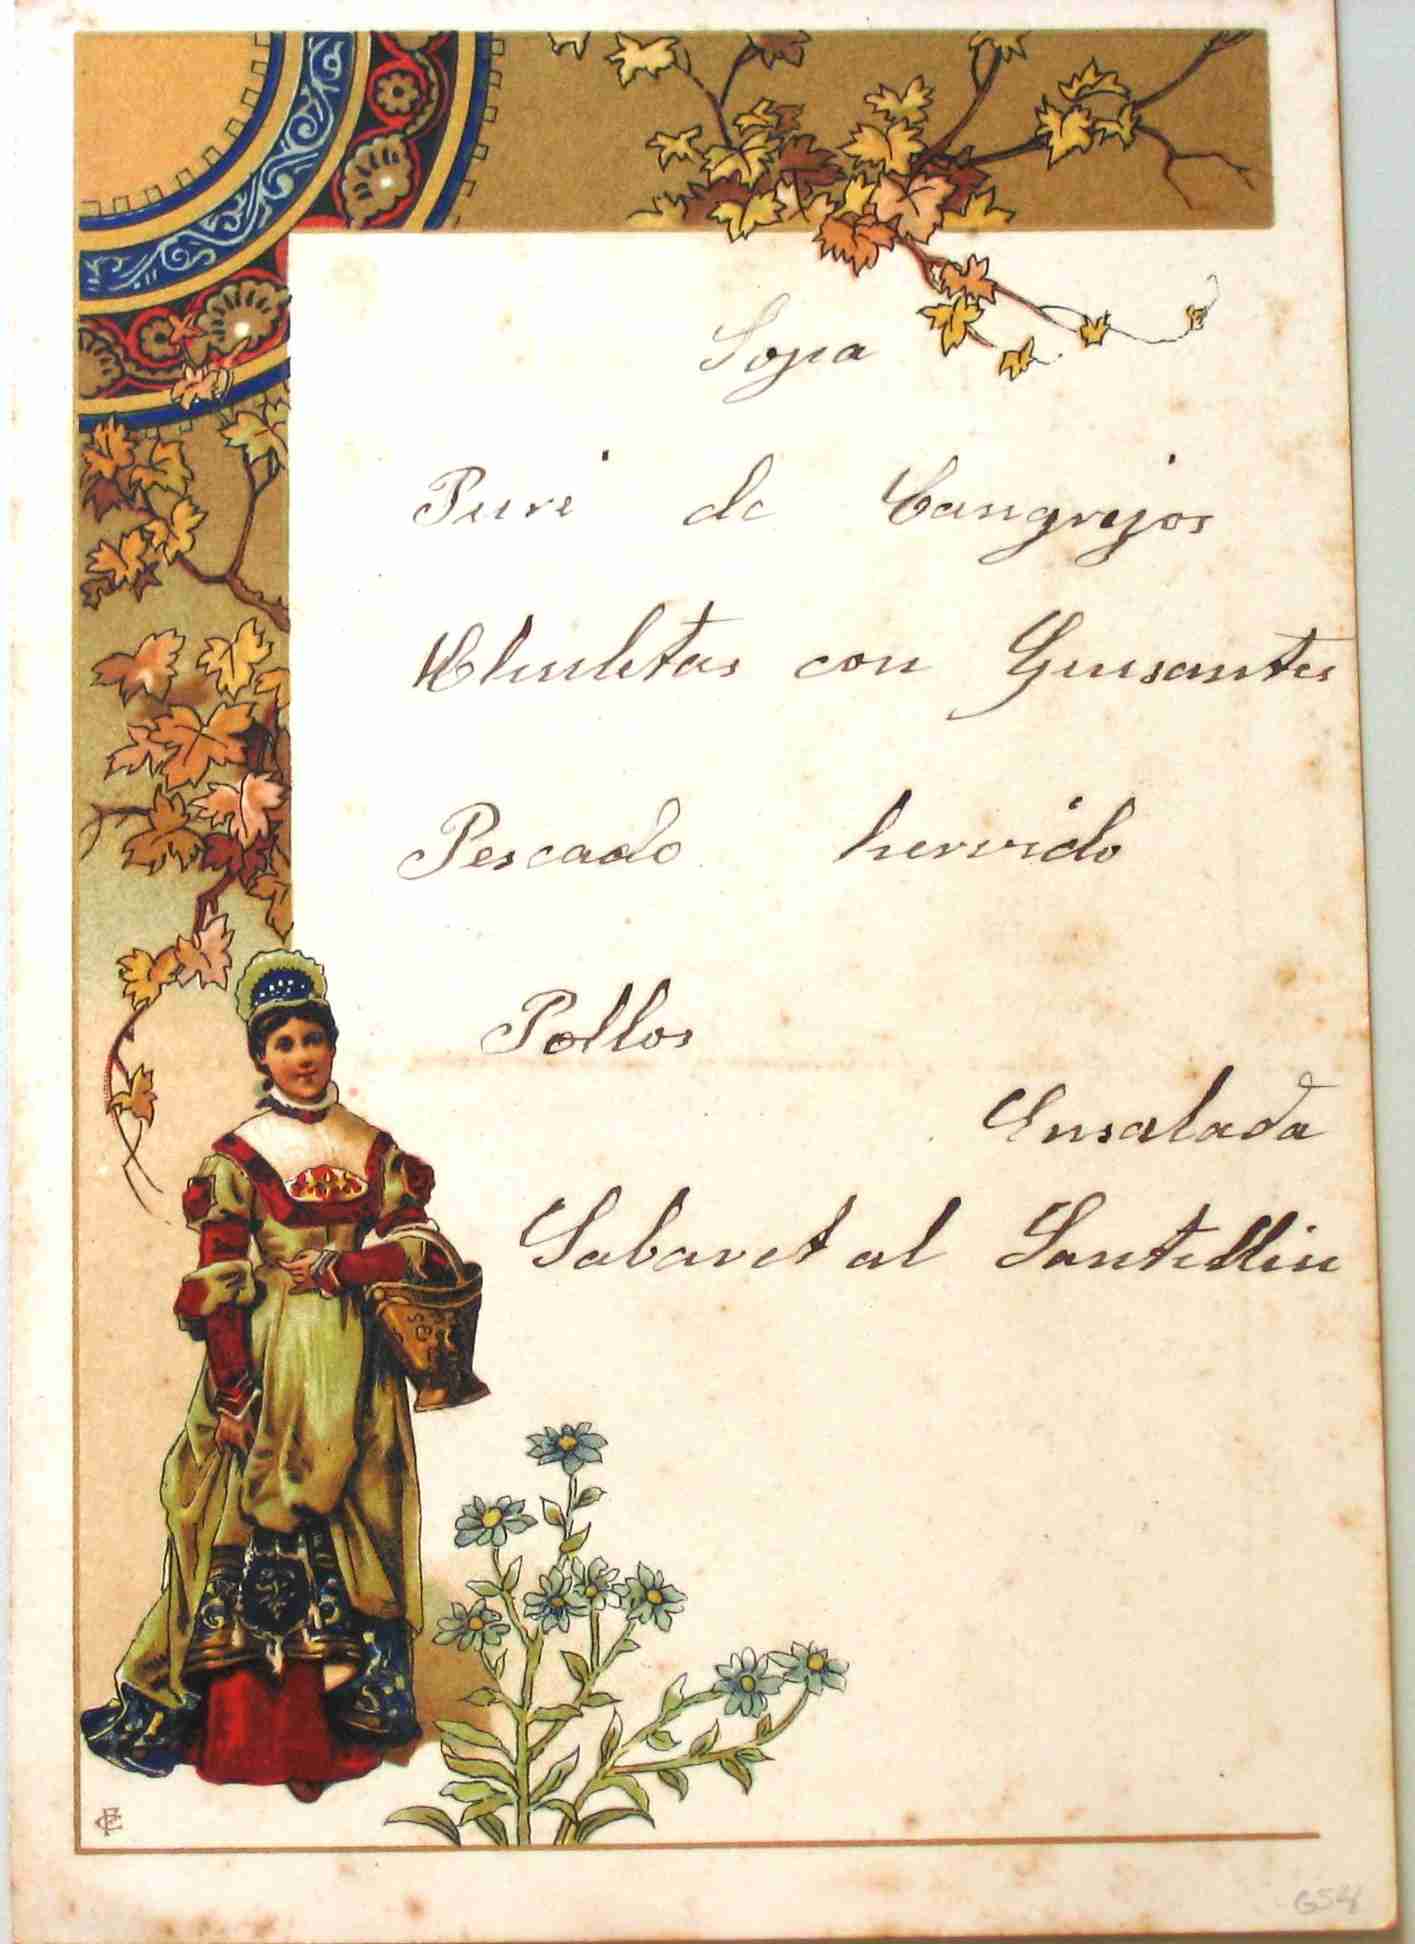 Sopa
Puré de Cangrejos
Chuletas con Guisantes
Pescado hervido
Pollos
Ensalada
Sabaret al Santillin
654